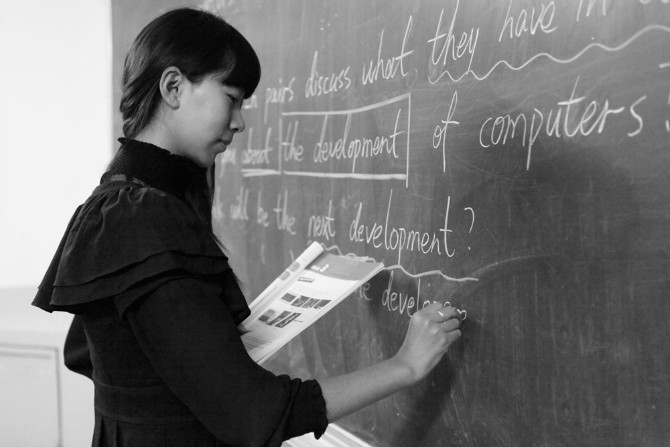 pairs discuss what they have in
about the development of computers.
will be the next development?
the develop